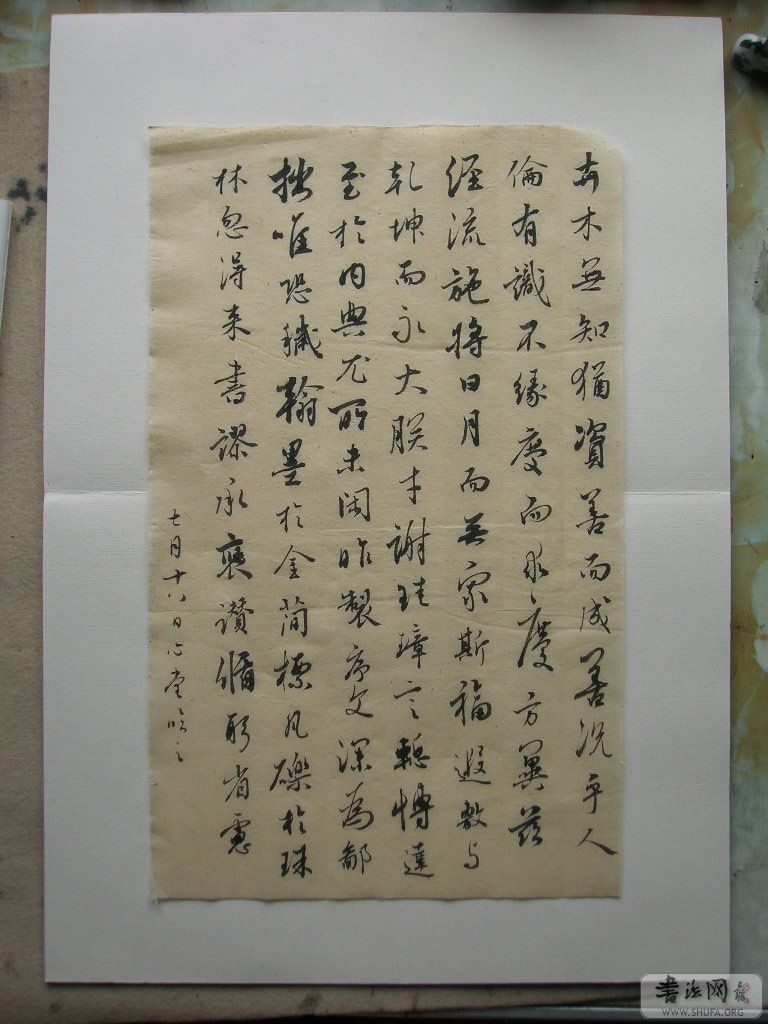 卉木無知猶資善而成善況乎人
倫有識不緣慶而求慶方冀茲
經流施將日月而無窮斯福遐敷与
乾坤而永大朕才謝珪璋言慙博達
至於內典尤所未閑昨製序文深為鄙
拙唯恐穢翰墨於金簡標瓦礫於珠
林忽得來書謬承褒讚循躬省慮
七月十八日心堂臨之
書法网
WWW.SHUFA.ORG